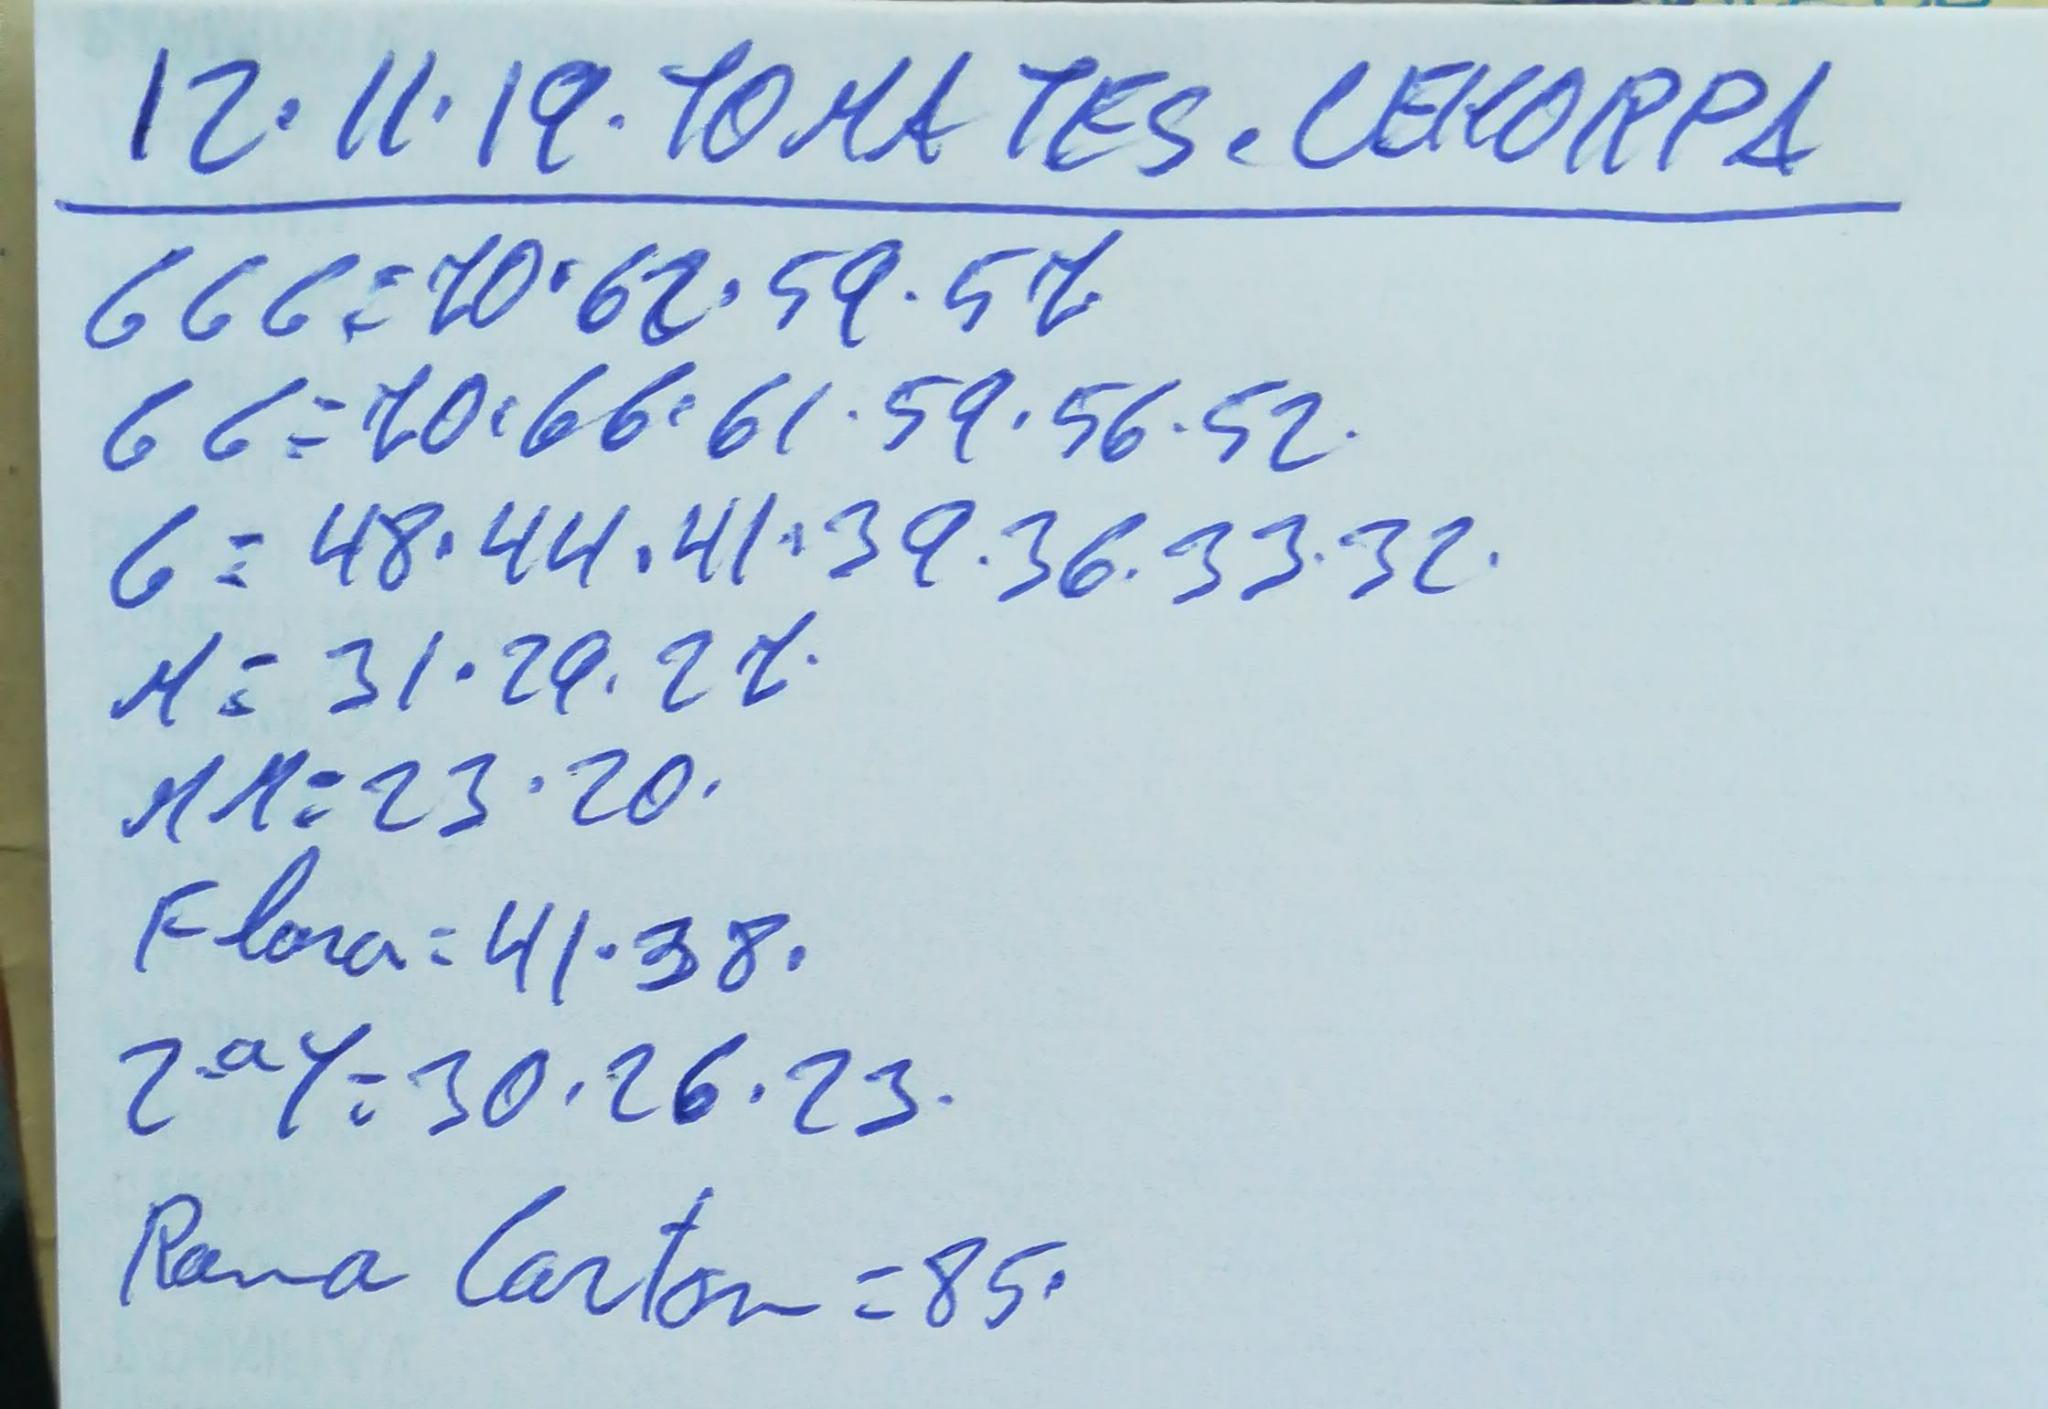 12.11.19.TOMATES.CEHORPA
GGG=70.62.59.57
GG=70.66.61.59.56.52.
G=48.44.41.39.36.33.32.
M=31.29.27.
MM=23.20.
Flora=41.38.
2.ªY=30.26.23.
Rama Carton=85.